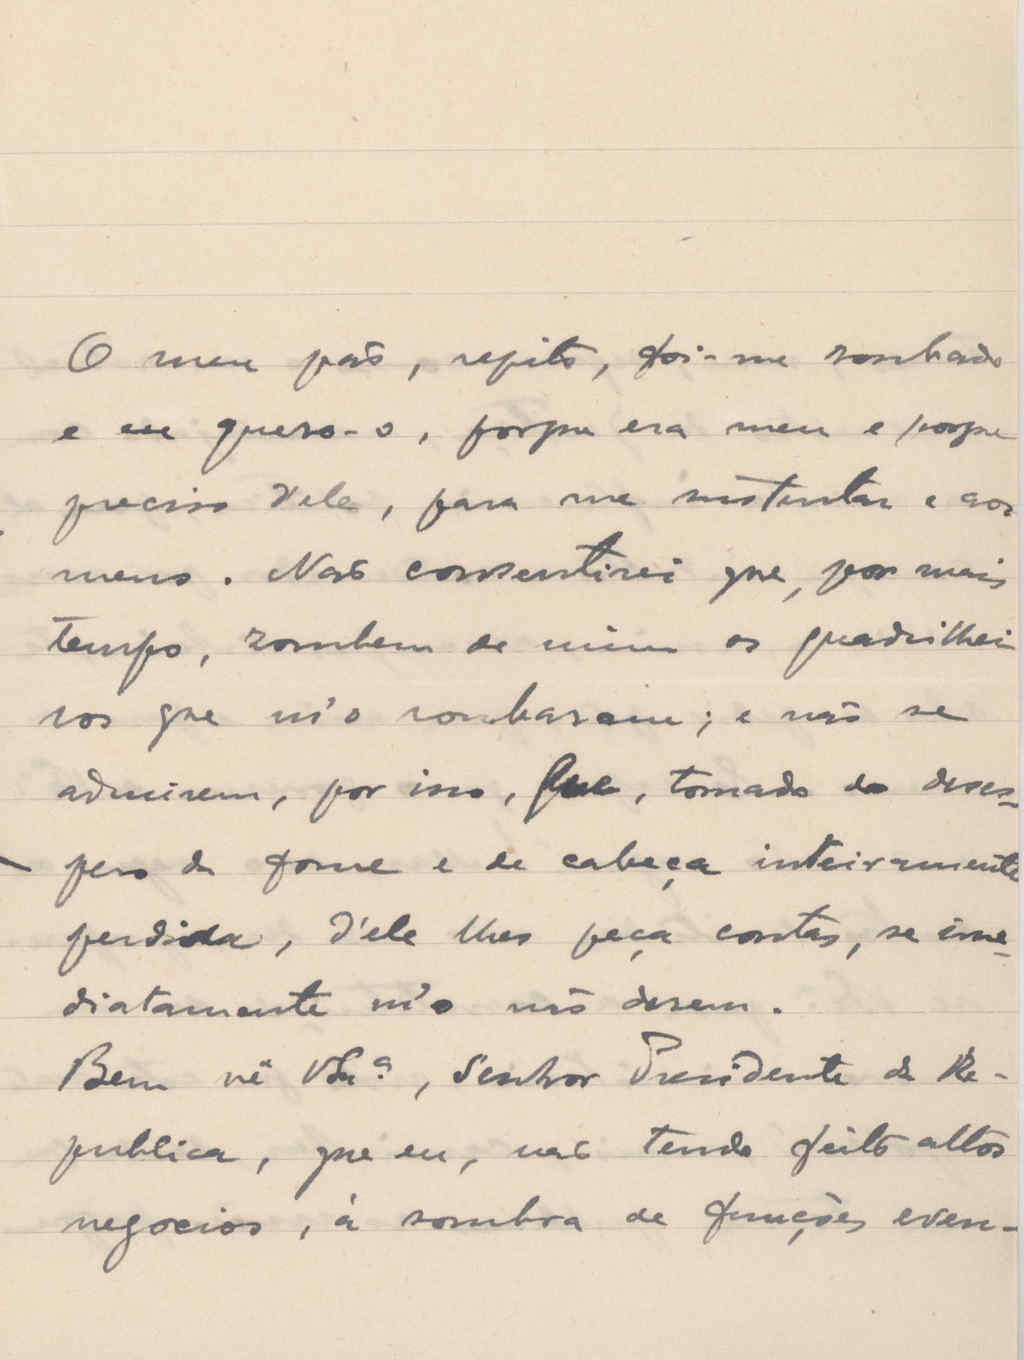 O meu pão, repito, foi-me roubado
e eu quero-o, porque era meu e porque
preciso d'ele, para me sustentar e aos
meus. Não consentirei que, por mais
tempo, zombem de mim os quadrilhei
ros que m'o roubaram; e não se
admirem, por isso, que, tomado do deses-
pero da fome e de cabeça inteiramente
perdida, d'ele lhes peça contas, se ime-
diatamente m'o não derem.
Bem vê V. Ex.ª, Senhor Presidente da Re-
publica, que eu, não tendo feito altos
negocios, á sombra de funções even-